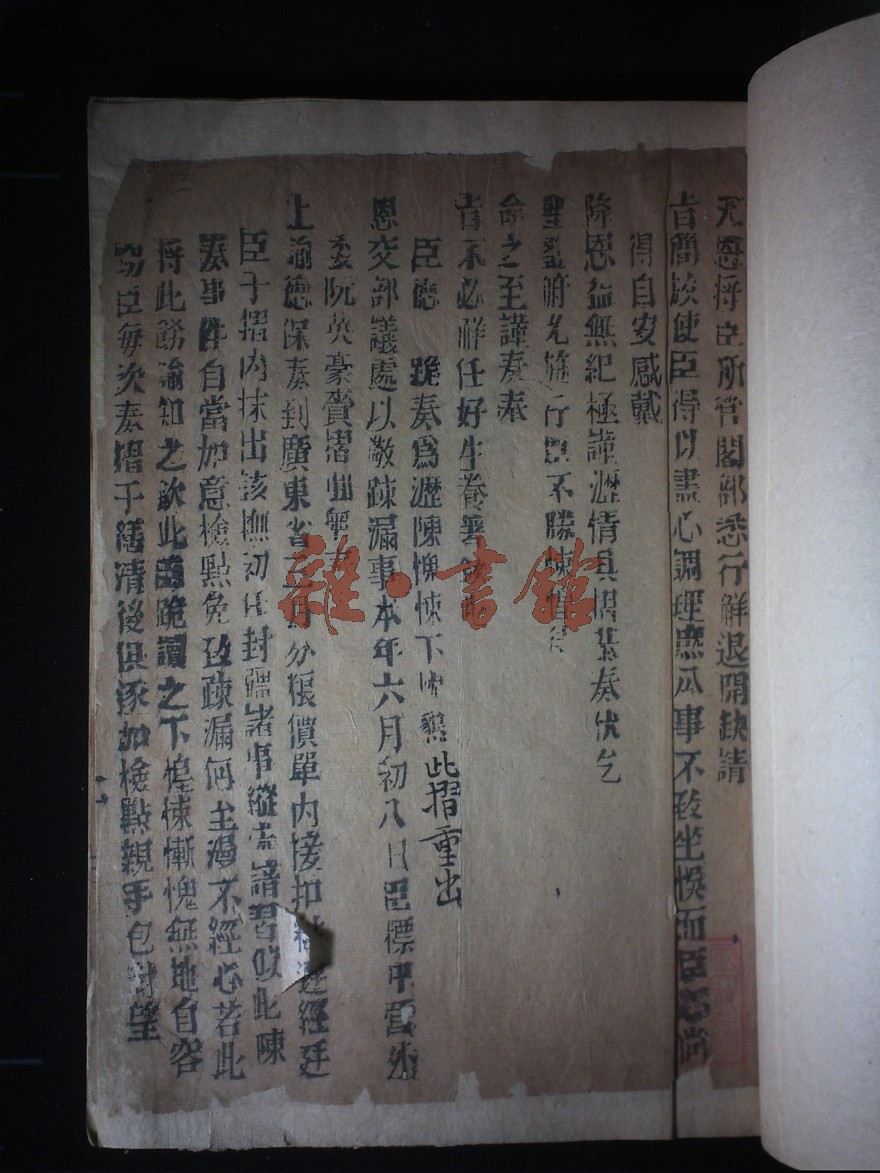 天恩将臣所管閣部悉行解退開缺請
旨簡放使臣得以盡心調理庶公事不致坐悞而臣心尚
得自安感戴
降恩益無紀極謹瀝情具摺恭奏伏乞
聖鑒俯允施行臣不勝悚惶
命之至謹奏奉
旨不必解任好生養
臣德 跪奏爲瀝陳愧悚下忱 此摺重出
恩交部議處以敬疎漏事本年六月初八日臣標中營外
委阮英豪賫摺回
上諭德保奏到廣東省 月分粮價單内接扣 經廷
臣于摺内抹出該撫初任封疆諸事縱未諳習似此陳
奏事件自當加意檢點免致疎漏何至漫不經心若此
将此飭諭知之欽此臣跪讀之下惶悚慚愧無地自容
竊臣每次奏摺于繕清後俱逐加檢點親手包封望
雜·書館